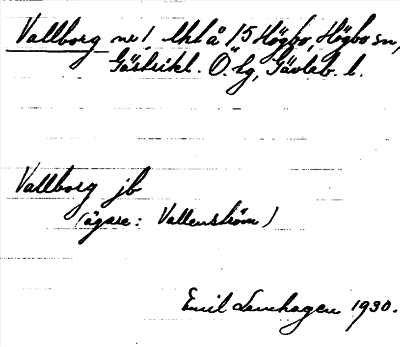 Vallborg nr 1 lht å 15 Högbo, Högbo sn,
Gästrikl. Ö. tg, Gävleb. l.
Vallborg jb
(ägare: Vallenström)
Emil Lenhagen 1930.